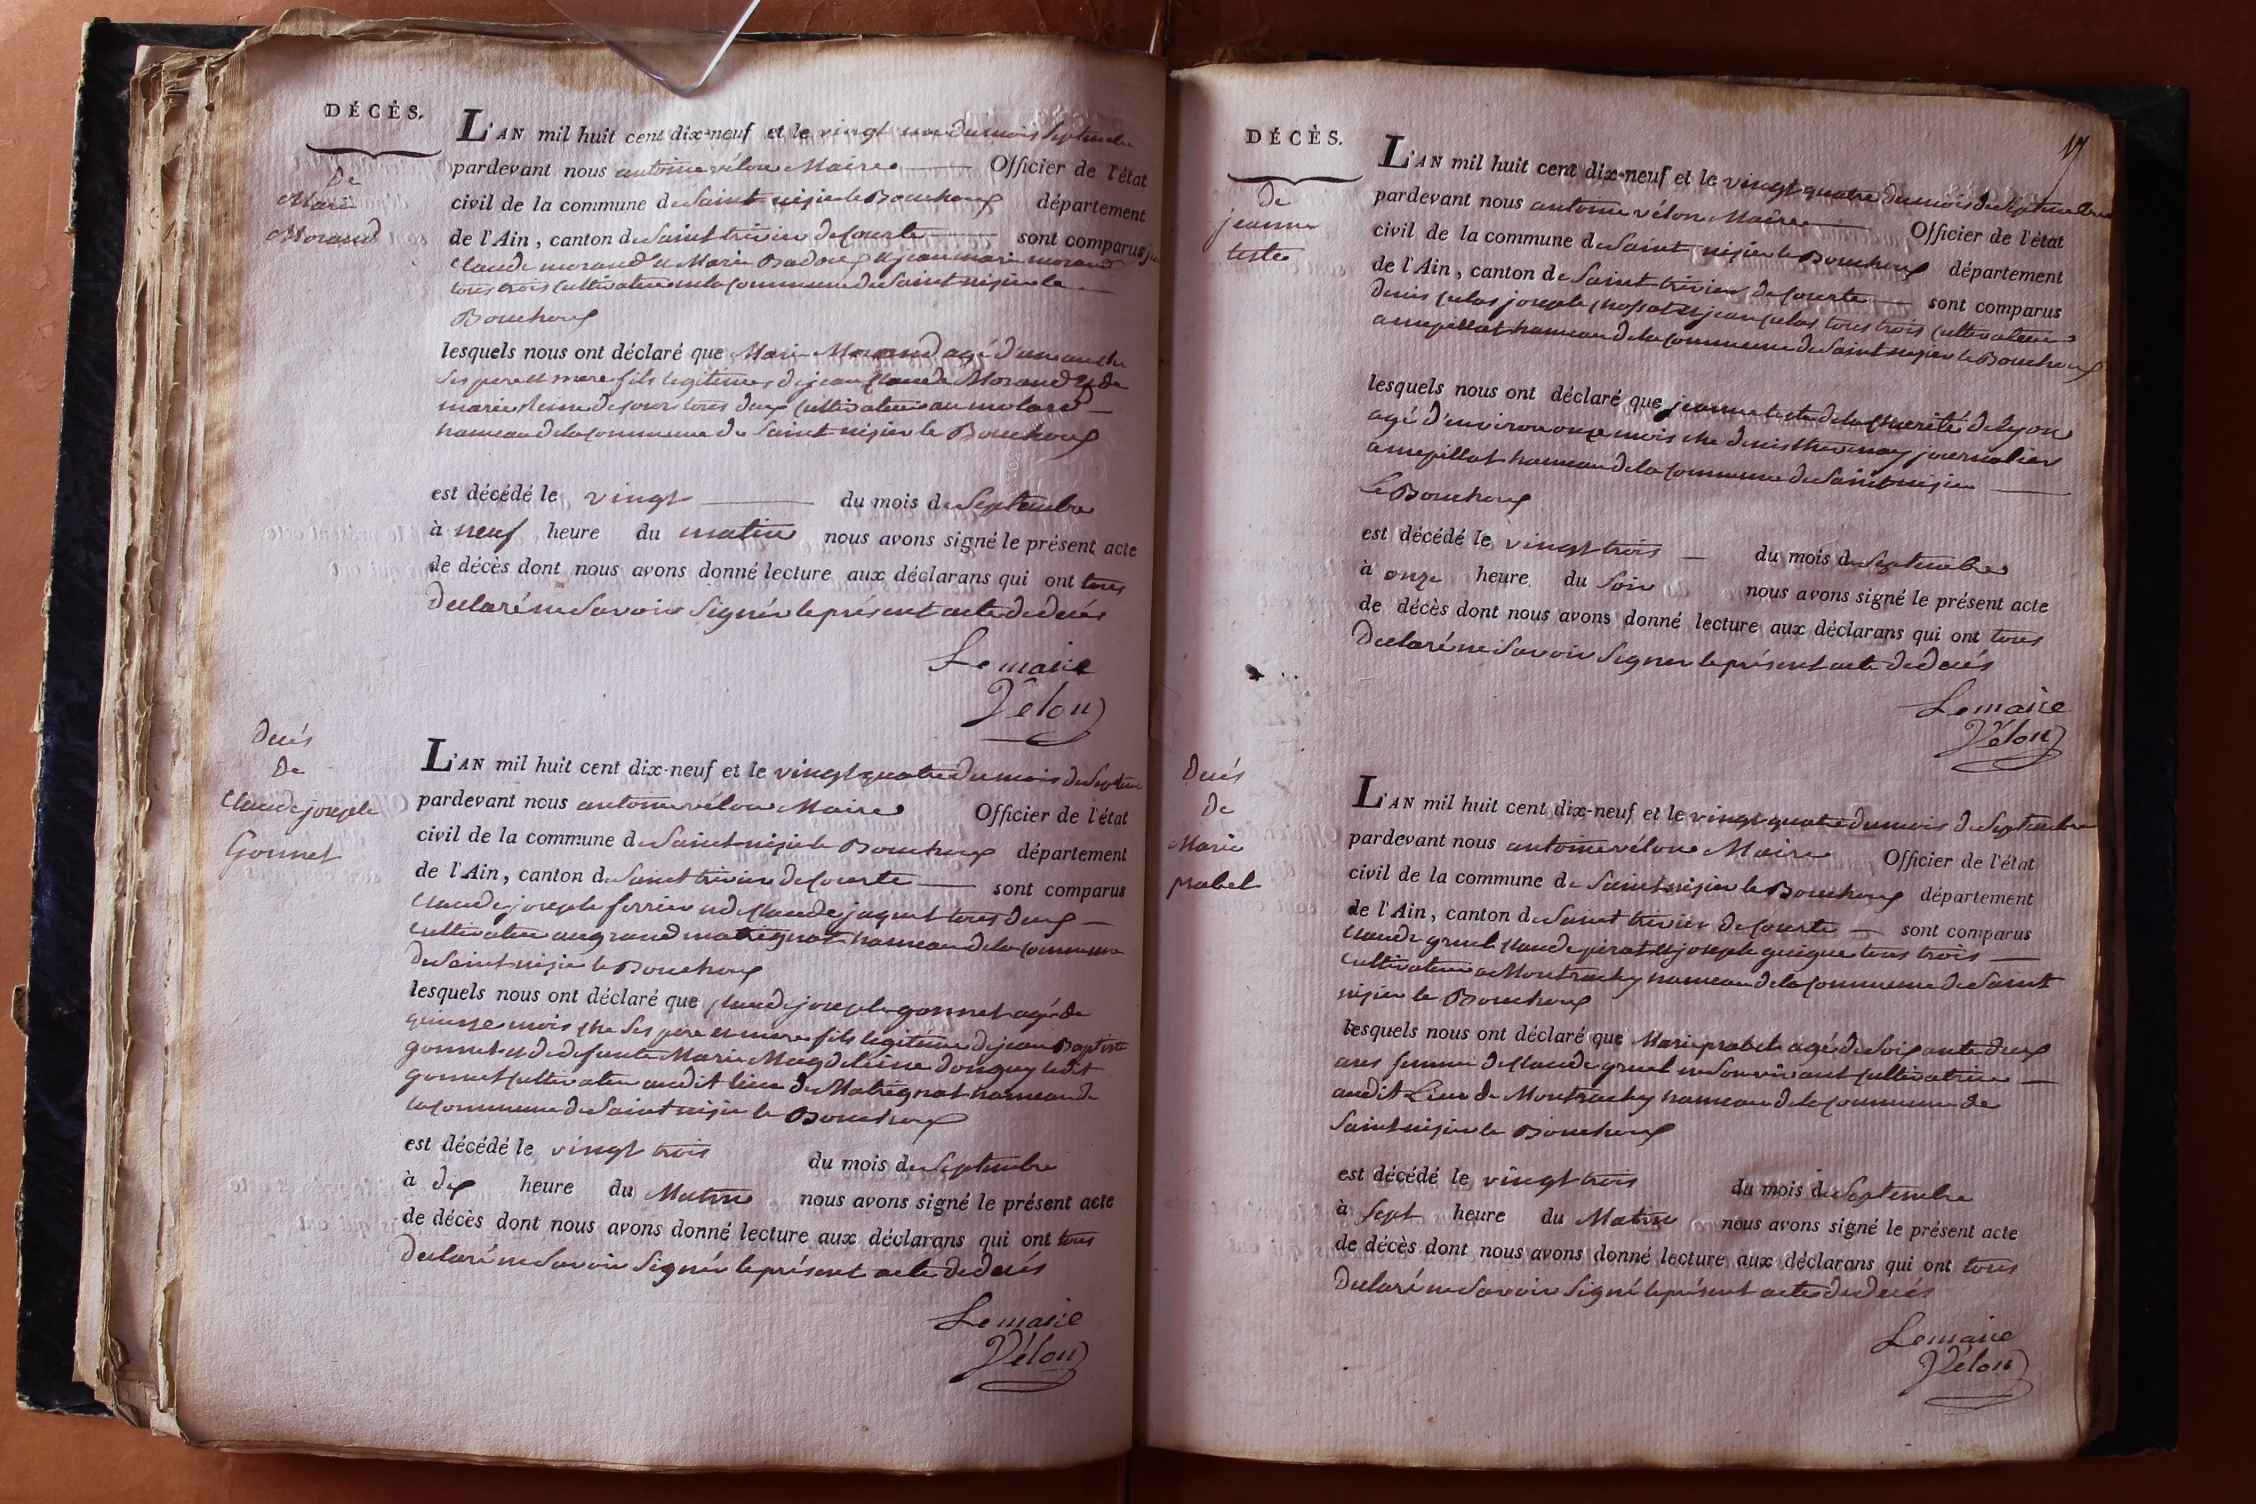 DÉCÈS.
De
Marie
Morand
L'AN mil huit cent dix-neuf et le vingt un du mois Septembre
pardevant nous antoine vélon Maire Officier de l'état
civil de la commune de Saint nisier le Bouchoux département
de l'Ain, canton de Saint trivier de Courte sont comparus
Claude morand et Marie et jean marie morand
tous trois Cultivateur en la commune de Saint nisier le
Bouchoux
lesquels nous ont déclaré que Marie Morand agé d'un an che
Ses pere et mere fils legitime de jean Claude Morand et de
marie tous deux Cultivateur au molard
hameau de la commune de Saint nisier le Bouchoux
est décédé le vingt du mois de Septembre
à neuf heure du matin nous avons signé le présent acte
de décès dont nous avons donné lecture aux déclarans qui ont tous
declaré ne Savoir Signér le présent acte de decés
Le maire
Vélon
Decés
De
Claude joseph
Gonnet
L'AN mil huit cent dix-neuf et le vingt quatre du mois de Septembre
pardevant nous antoine vélon Maire Officier de l'état
civil de la commune de Saint nisie le Bouchoux département
de l'Ain, canton de Sainct trivier de Courte sont comparus
Claude joseph ferrier et Claude jaquet tous deux
Cultivateur au grand matrignat hameau de la commune
de Saint nisié le Bouchoux
lesquels nous ont déclaré que Claude joseph gonnet agé de
quinze mois che Ses pere et mere fils legitime de jean Baptiste
gonnet et de defunte Marie Magdeleine donguy ledit
gonnet Cultivateur audit lieu de Matrignat hameau de
la commune de Saint nisié le Bouchoux
est décédé le vingt trois du mois de Septembre
à dix heure du Matin nous avons signé le présent acte
de décès dont nous avons donné lecture aux déclarans qui ont tous
declaré ne Savoir Signér le présent acte de decés
Le maire
Vélon
17
DÉCÈS.
de
jeanne
teste
L'AN mil huit cent dix-neuf et le vingt quatre du mois de Septembre
pardevant nous antoine vélon Maire Officier de l'état
civil de la commune de Saint nisier le Bouchoux département
de l'Ain, canton de Saint trivier de Courte sont comparus
denis joseph et jean tous trois Cultivateur
a hameau de la commune de Saint nisier le Bouchoux
lesquels nous ont déclaré que jeanne teste de la Charité de lyon
agé d'environ onze mois che denis journalier
a hameau de la commune de Saint nisier
le Bouchoux
est décédé le vingt trois du mois de Septembre
à onze heure du Soir nous avons signé le présent acte
de décès dont nous avons donné lecture aux déclarans qui ont tous
declaré ne Savoir Signer le présent acte de decés
Le maire
Vélon
Decés
De
Marie
prabel
L'AN mil huit cent dix-neuf et le vingt quatre du mois de Septembre
pardevant nous antoine vélon Maire Officier de l'état
civil de la commune de Saint nisier le Bouchoux département
de l'Ain, canton de Saint trivier de Courte sont comparus
Claude gruel Claude pirat et joseph guigue tous trois
Cultivateur a Montrachy hameau de la commune de Saint
nisier le Bouchoux
lesquels nous ont déclaré que Marie prabel agé de Soixante deux
ans femme de Claude gruel en Son vivant Cultivatrice
audit Lieu de Montrachy hameau de la commune de
Saint nisier le Bouchoux
est décédé le vingt trois du mois de Septembre
à Sept heure du Matin nous avons signé le présent acte
de décès dont nous avons donné lecture aux déclarans qui ont tous
declaré ne Savoir Signé le présent acte de decés
Le maire
Vélon